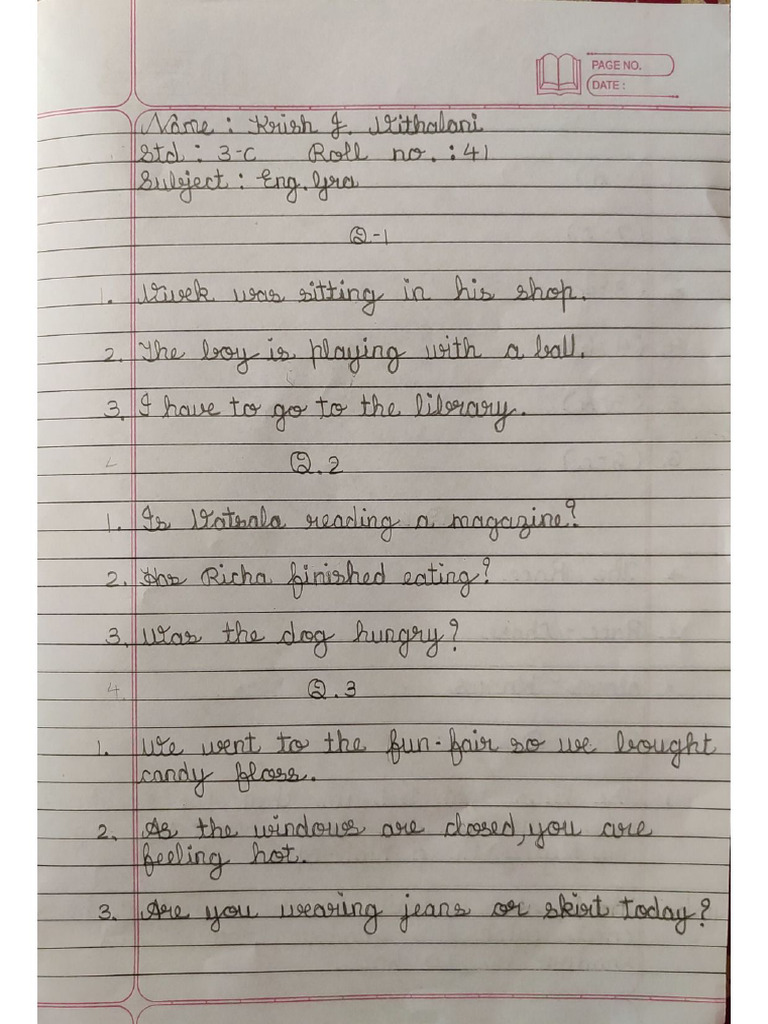 PAGE NO.
DATE :
Name : Krish J. Vithalani
Std : 3-C Roll no. : 41
Subject : Eng. Gra
Q-1
1. Vivek was sitting in his shop.
2. The boy is playing with a ball.
3. I have to go to the library.
Q.2
1. Is Vatsala reading a magazine?
2. Has Richa finished eating?
3. Was the dog hungry?
4. Q.3
1. We went to the fun-fair so we bought
candy floss.
2. As the windows are closed, you are
feeling hot.
3. Are you wearing jeans or skirt today?